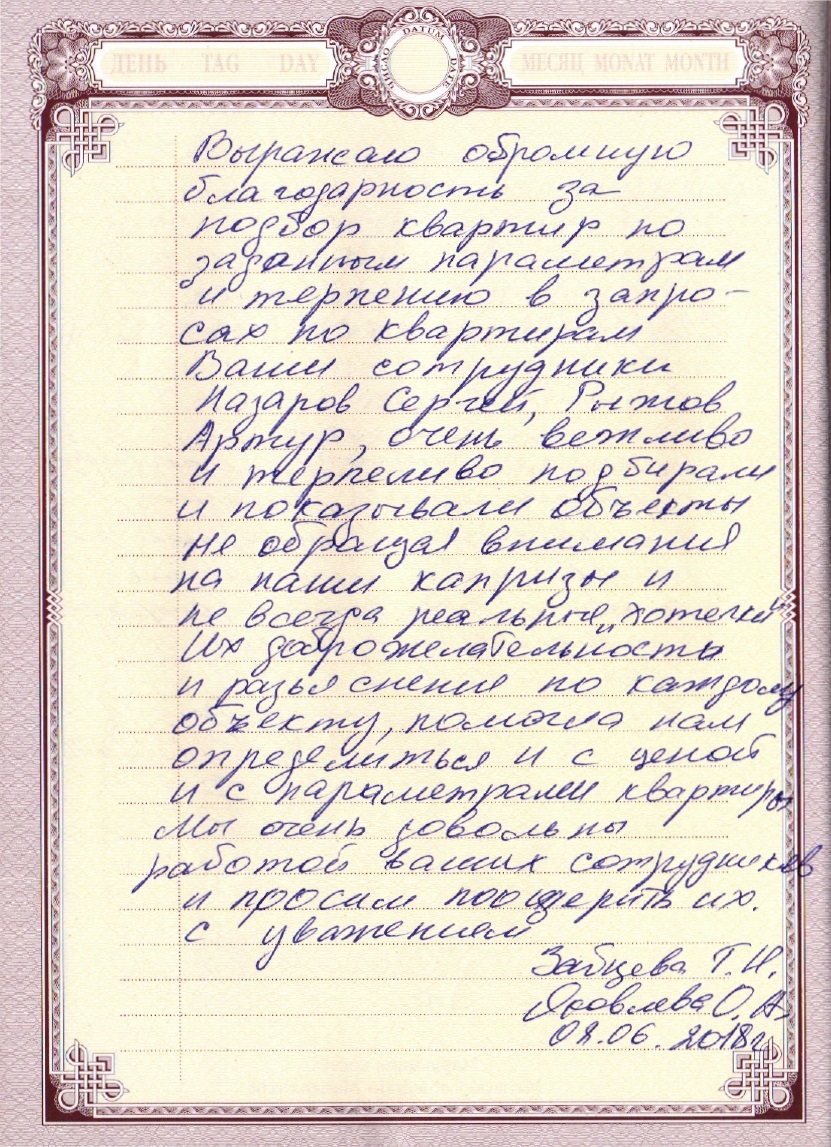 ДЕНЬ TAG DAY
ЧИСЛО DATUM DATE
МЕСЯЦ MONAT MONTH
Выражаю обромную
благодарность за
подбор квартир по
заданным параметрам
и терпению в запро-
сах по квартирам
Ваши сотрудники
Назаров Сергей, Рыжов
Артур, очень вежливо
и терпеливо подбирали
и показывали объекты
не обращая внимания
на наши капризы и
не всегда реальные „хотелки"
Их доброжелательность
и разъяснения по каждому
объекту, помогла нам
определиться и с ценой
и с параметрами квартиры
Мы очень довольны
работой ваших сотрудников
и просим поощерить их.
с уважением
Зайцева Г.Н.
Яковлева О.А.
02.06.2018г